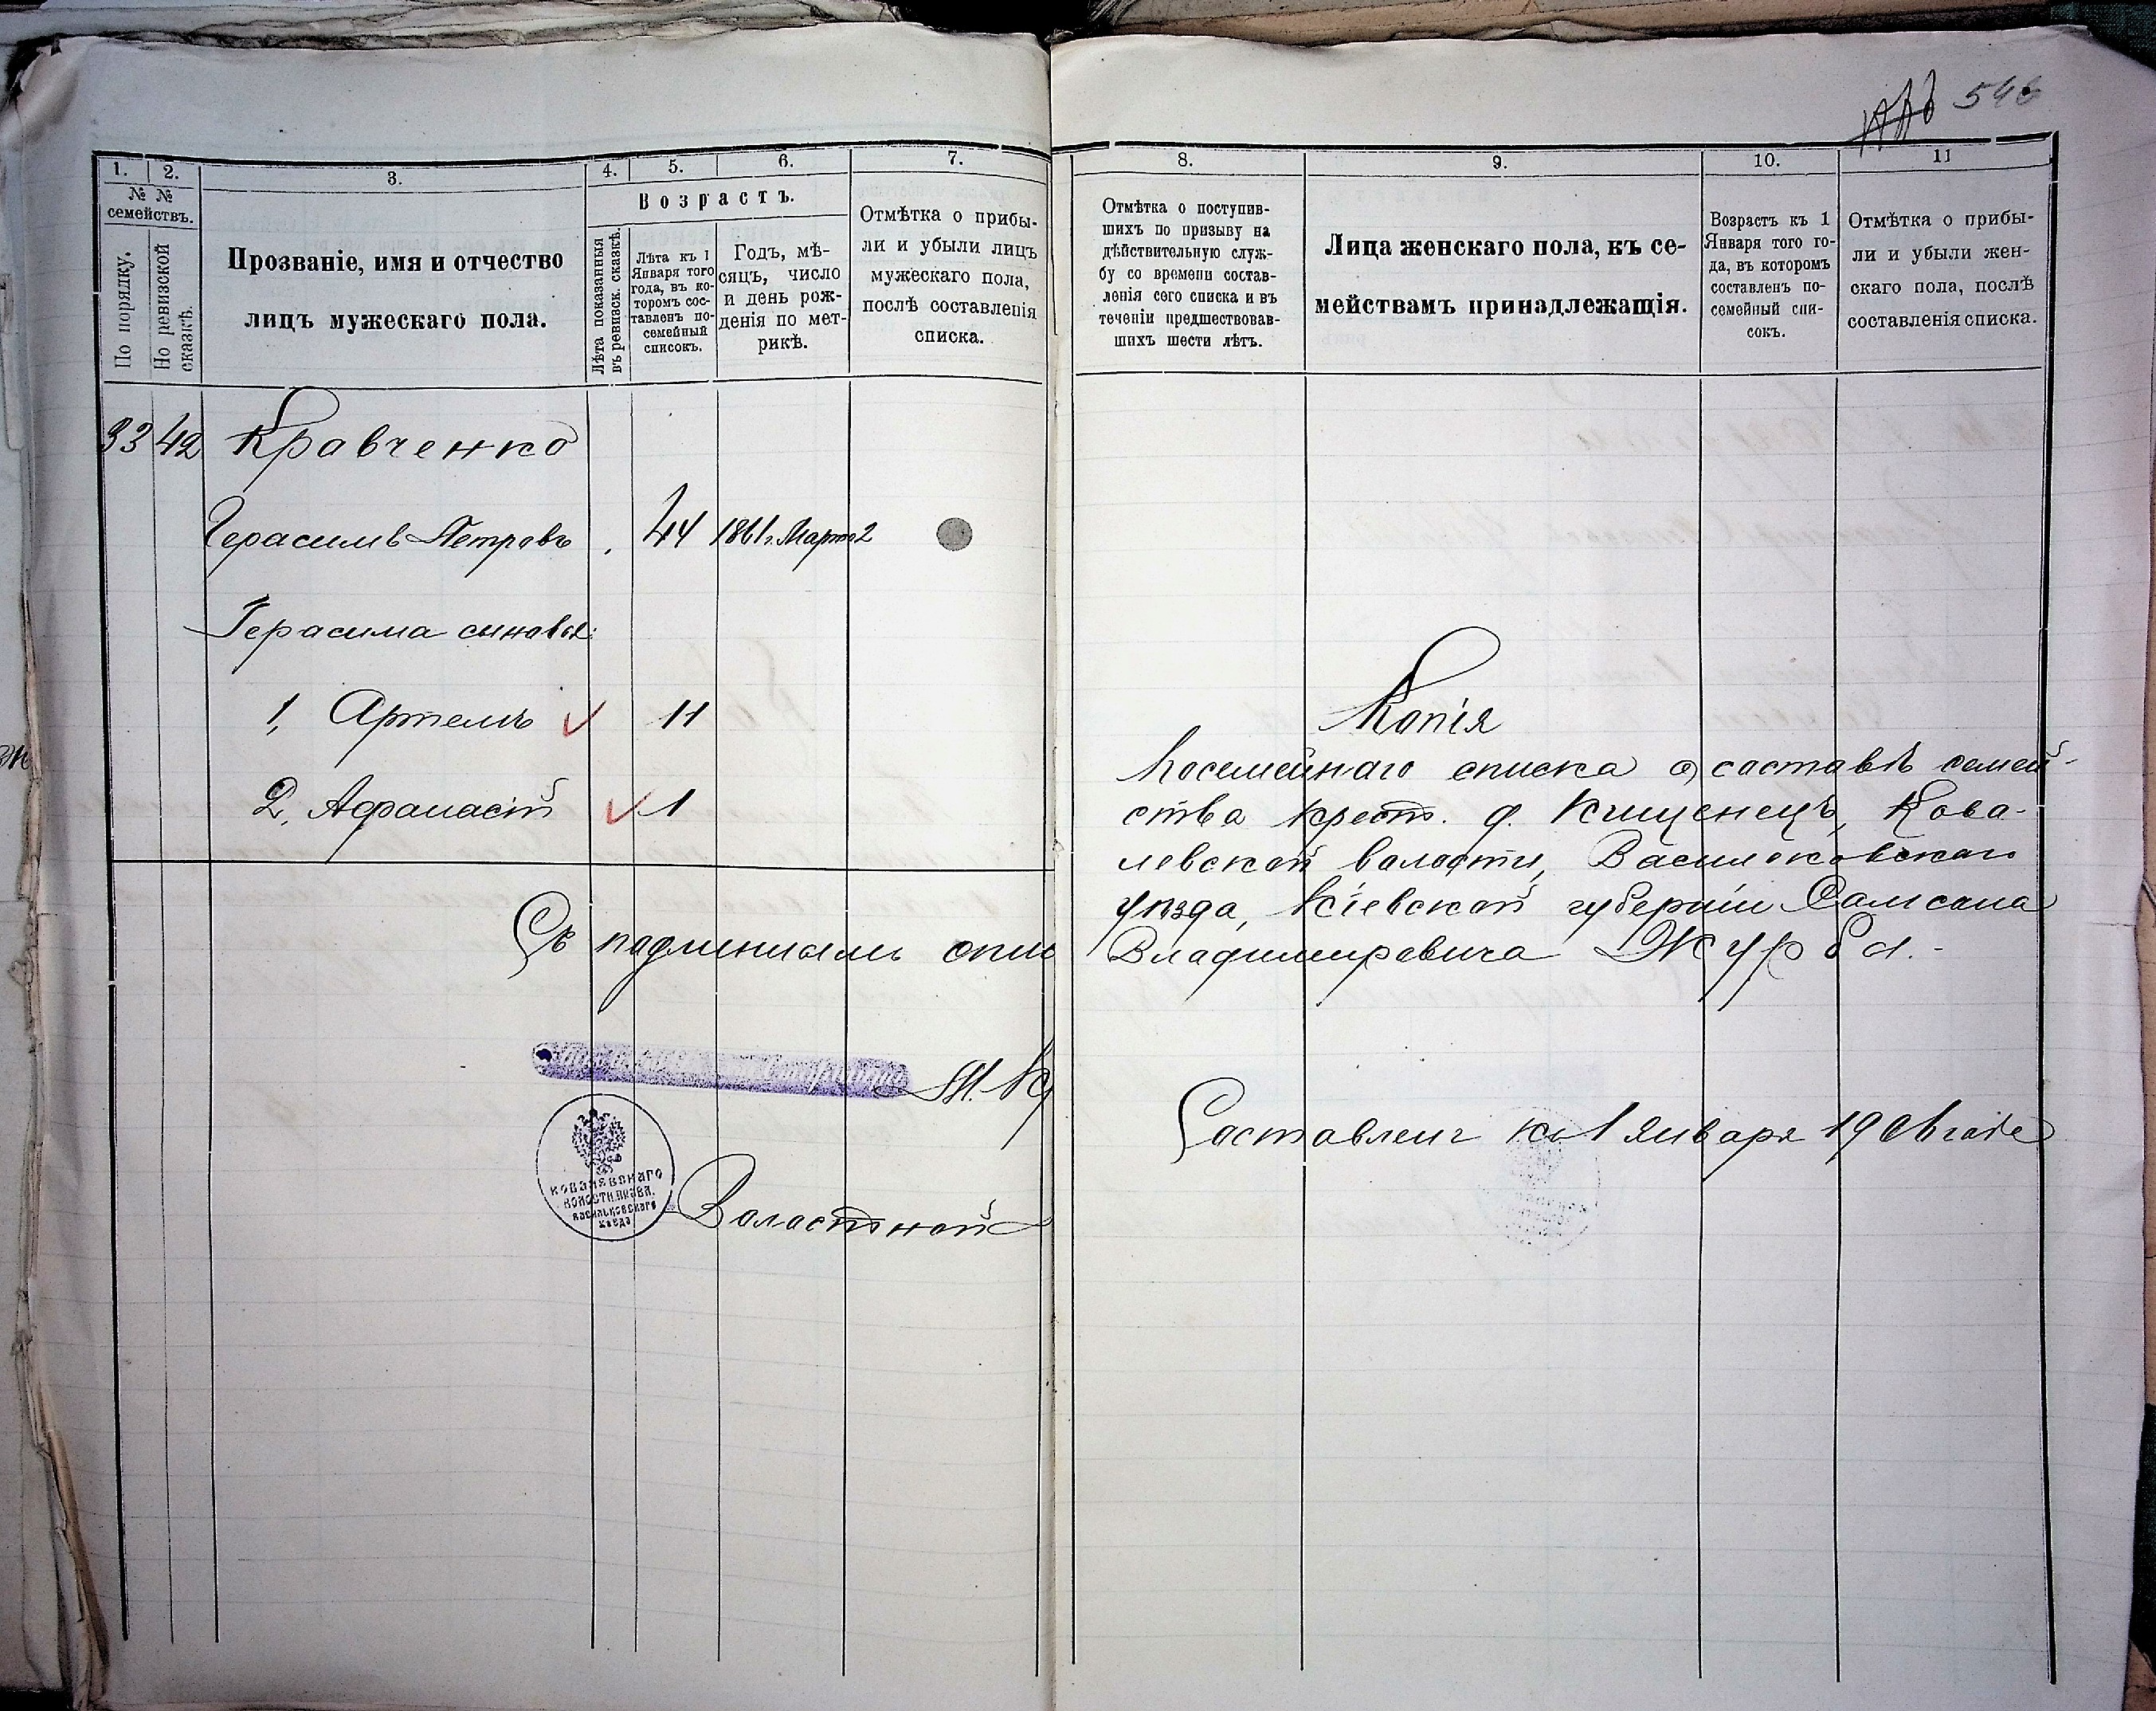 546
1. 2. 3. 4. 5. 6. 7.
№ №
семействъ.
По порядку.
По ревизской
сказкѣ.
Прозваніе, имя и отчество
лицъ мужескаго пола.
Возрастъ.
Лѣта показанныя
въ ревизск. сказкѣ.
Лѣта къ 1
Января того
года, въ ко-
торомъ сос-
тавленъ по-
семейный
списокъ.
Годъ, мѣ-
сяцъ, число
и день рож-
денія по мет-
рикѣ.
Отмѣтка о прибы-
ли и убыли лицъ
мужескаго пола,
послѣ составленія
списка.
33 42 Кравченко
Герасимъ Петровъ 44 1861 г. Марта 2
Герасима сыновья:
1, Артемъ 11
2, Афанасій 1
Съ подлиннымъ
КОВАЛЕВСКАГО
ВОЛОСТН. ПРАВЛ.
ВАСИЛЬКОВСКАГО
УѢЗДА
Волостной
8. 9. 10. 11
Отмѣтка о поступив-
шихъ по призыву на
дѣйствительную служ-
бу со времени состав-
ленія сего списка и въ
теченіи предшествовав-
шихъ шести лѣтъ.
Лица женскаго пола, къ се-
мействамъ принадлежащія.
Возрастъ къ 1
Января того го-
да, въ которомъ
составленъ по-
семейный спи-
сокъ.
Отмѣтка о прибы-
ли и убыли жен-
скаго пола, послѣ
составленія списка.
Копія
посемейнаго списка о составѣ семей-
ства крест. д. Кищенецъ, Кова-
левской волости, Васильковскаго
уѣзда, Кіевской губерніи Самсона
Владимировича Журбы.-
Составленъ къ 1 января 1906 года